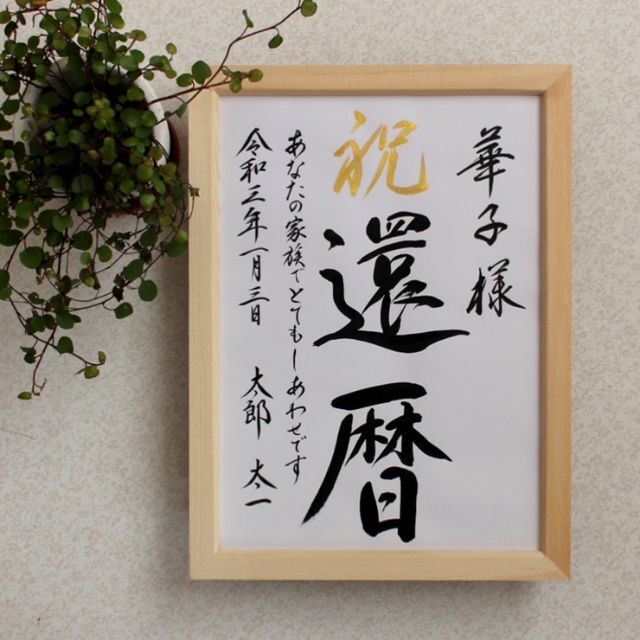 華子様
祝
還暦
あなたの家族でとてもしあわせです
令和三年一月三日 太郎 太一